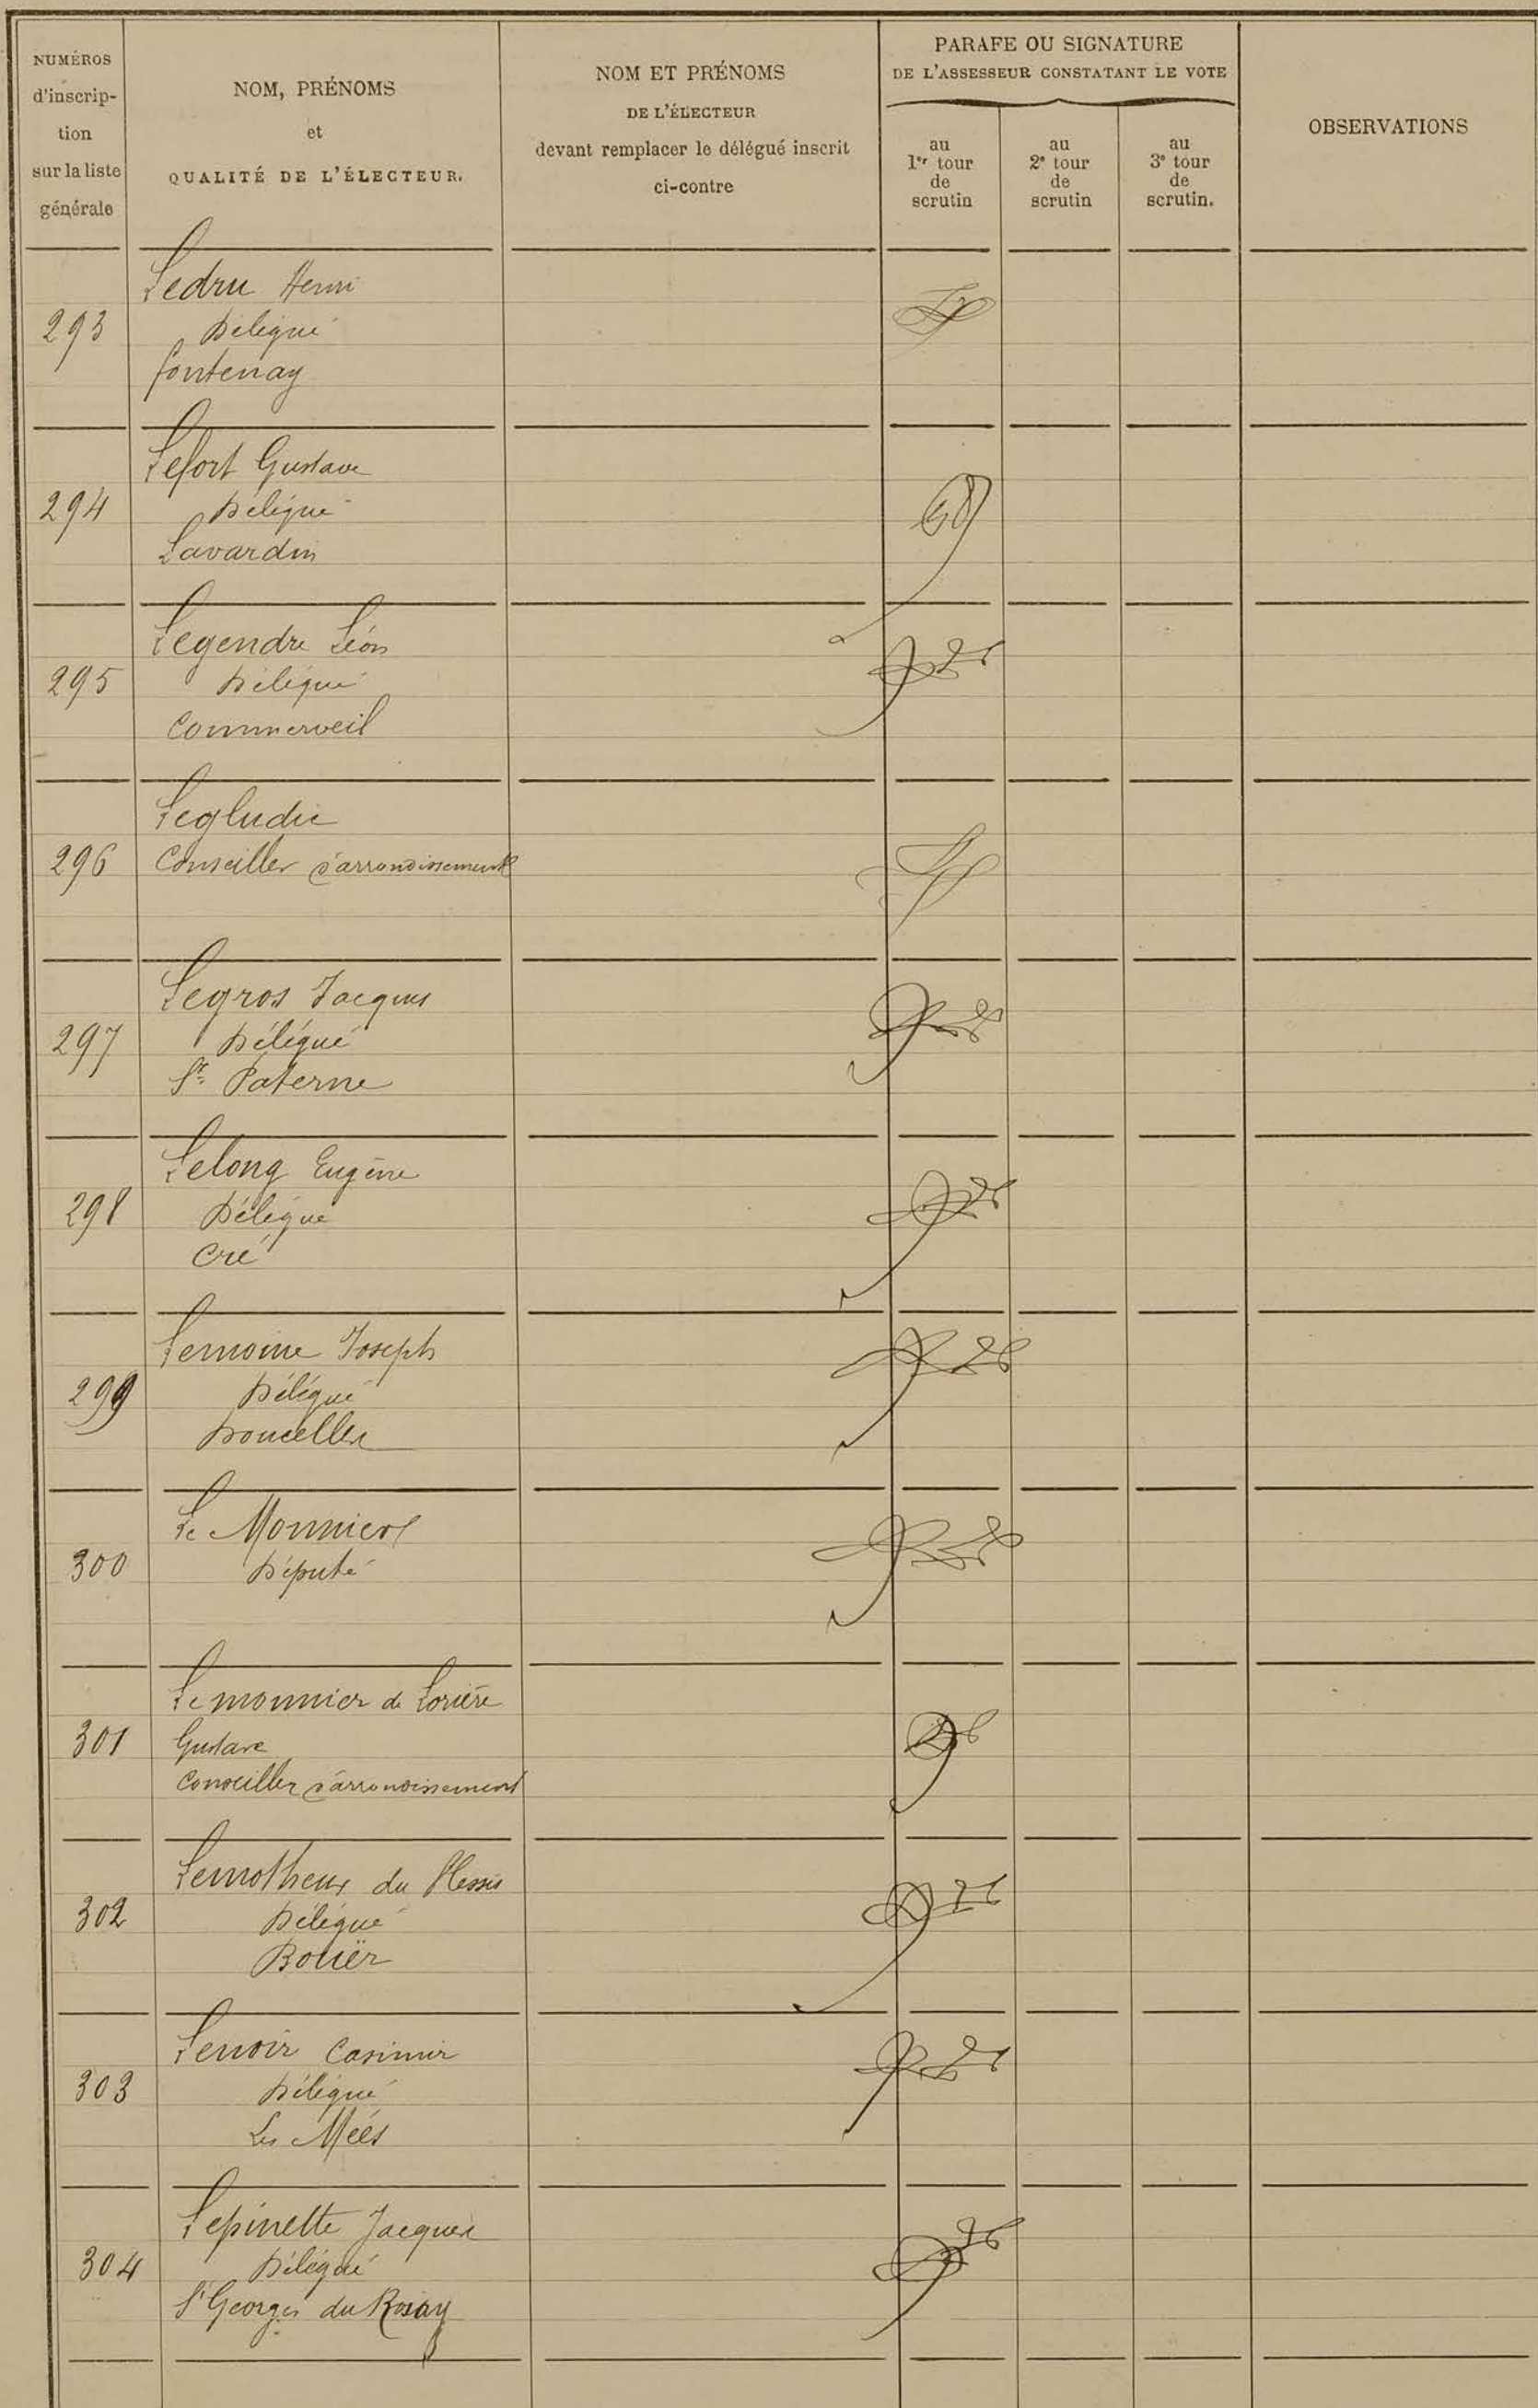 NUMÉROS
d'inscrip-
tion
sur la liste
générale
NOM, PRÉNOMS
et
QUALITÉ DE L'ÉLECTEUR.
NOM ET PRÉNOMS
DE L'ÉLECTEUR
devant remplacer le délégué inscrit
ci-contre
PARAFE OU SIGNATURE
DE L'ASSESSEUR CONSTATANT LE VOTE
au
1er tour
de
scrutin
au
2e tour
de
scrutin
au
3e tour
de
scrutin.
OBSERVATIONS
Ledru Henri
293 Délégué
Fontenay
Lefort Gustave
294 Délégué
Lavardin
Legendre Léon
295 Délégué
Commerveil
Legludic
296 Conseiller d'arrondissement
Legros Jacques
297 Délégué
St Paterne
Lelong Eugène
298 Délégué
Cré
Lemoine Joseph
299 Délégué
Doucelles
Le Monnier
300 Député
Lemonnier de Lorière
301 Gustave
Conseiller d'arrondissement
Lemotheux du Plessis
302 Délégué
Bouër
Lenoir Casimir
303 Délégué
Les Méés
Lepinette Jacques
304 Délégué
St Georges du Rosay